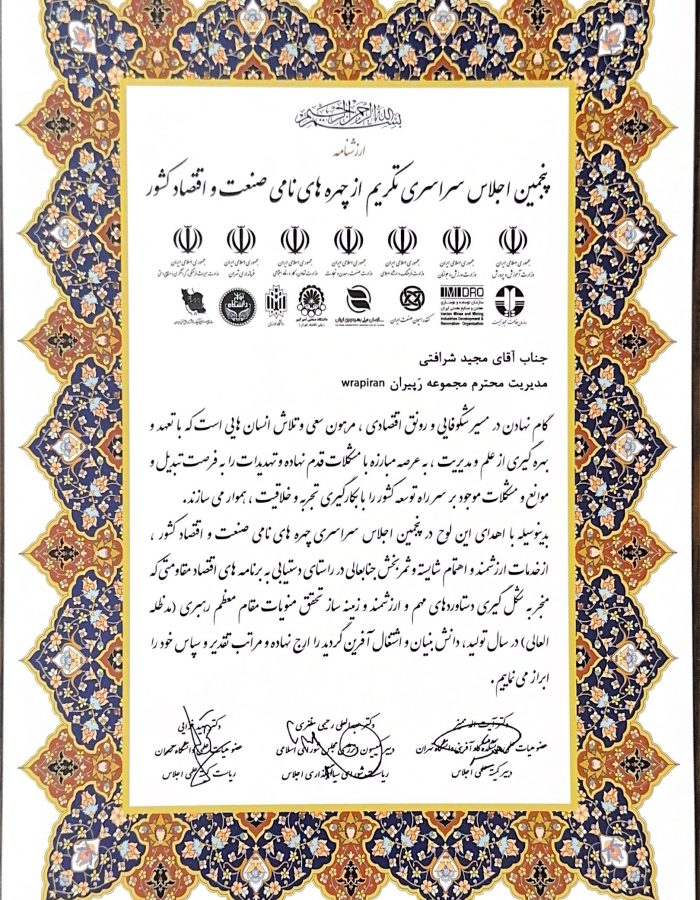 بسم الله الرحمن الرحیم
ارزشنامه
پنجمین اجلاس سراسری تکریم از چهره های نامی صنعت و اقتصاد کشور
جمهوری اسلامی ایران جمهوری اسلامی ایران جمهوری اسلامی ایران جمهوری اسلامی ایران جمهوری اسلامی ایران جمهوری اسلامی ایران جمهوری اسلامی ایران
وزارت آموزش و پرورش وزارت ورزش و جوانان وزارت فرهنگ و ارشاد اسلامی وزارت صنعت، معدن و تجارت وزارت تعاون، کار و رفاه اجتماعی فرمانداری تهران
IMIDRO
سازمان توسعه و نوسازی
معادن و صنایع معدنی ایران
Iranian Mines and Mining
Industries Development &
Renovation Organization
کنفدراسیون صنعت ایران
سازمان ملی بهره وری ایران
دانشگاه صنعتی امیرکبیر
(پلی تکنیک تهران)
جناب آقای مجید شرافتی
مدیریت محترم مجموعه رَپیران wrapiran
گام نهادن در مسیر شکوفایی و رونق اقتصادی ، مرهون سعی و تلاش انسان هایی است که با تعهد و
بهره گیری از علم و مدیریت ، به عرصه مبارزه با مشکلات قدم نهاده و تهدیدات را به فرصت تبدیل و
موانع و مشکلات موجود بر سر راه توسعه کشور را با بکارگیری تجربه و خلاقیت ، هموار می سازند.
بدینوسیله با اهدای این لوح در پنجمین اجلاس سراسری چهره های نامی صنعت و اقتصاد کشور ،
از خدمات ارزشمند و اهتمام شایسته و ثمربخش جنابعالی در راستای دستیابی به برنامه های اقتصاد مقاومتی که
منجر به شکل گیری دستاوردهای مهم و ارزشمند و زمینه ساز تحقق منویات مقام معظم رهبری (مدظله
العالی) در سال تولید ، دانش بنیان و اشتغال آفرین گردید را ارج نهاده و مراتب تقدیر و سپاس خود را
ابراز می نماییم .
دکتر عبدالعلی رحیمی مظفری
دبیر کمیسیون مجلس شورای اسلامی
عضو هیات علمی دانشگاه تهران
دبیر کمیته علمی اجلاس ریاست شورای سیاستگذاری اجلاس ریاست کمیته علمی اجلاس